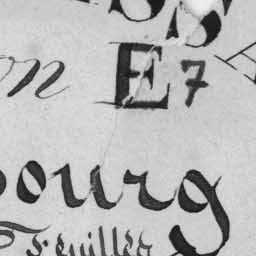 SS
on E 7
bourg
Feuilles